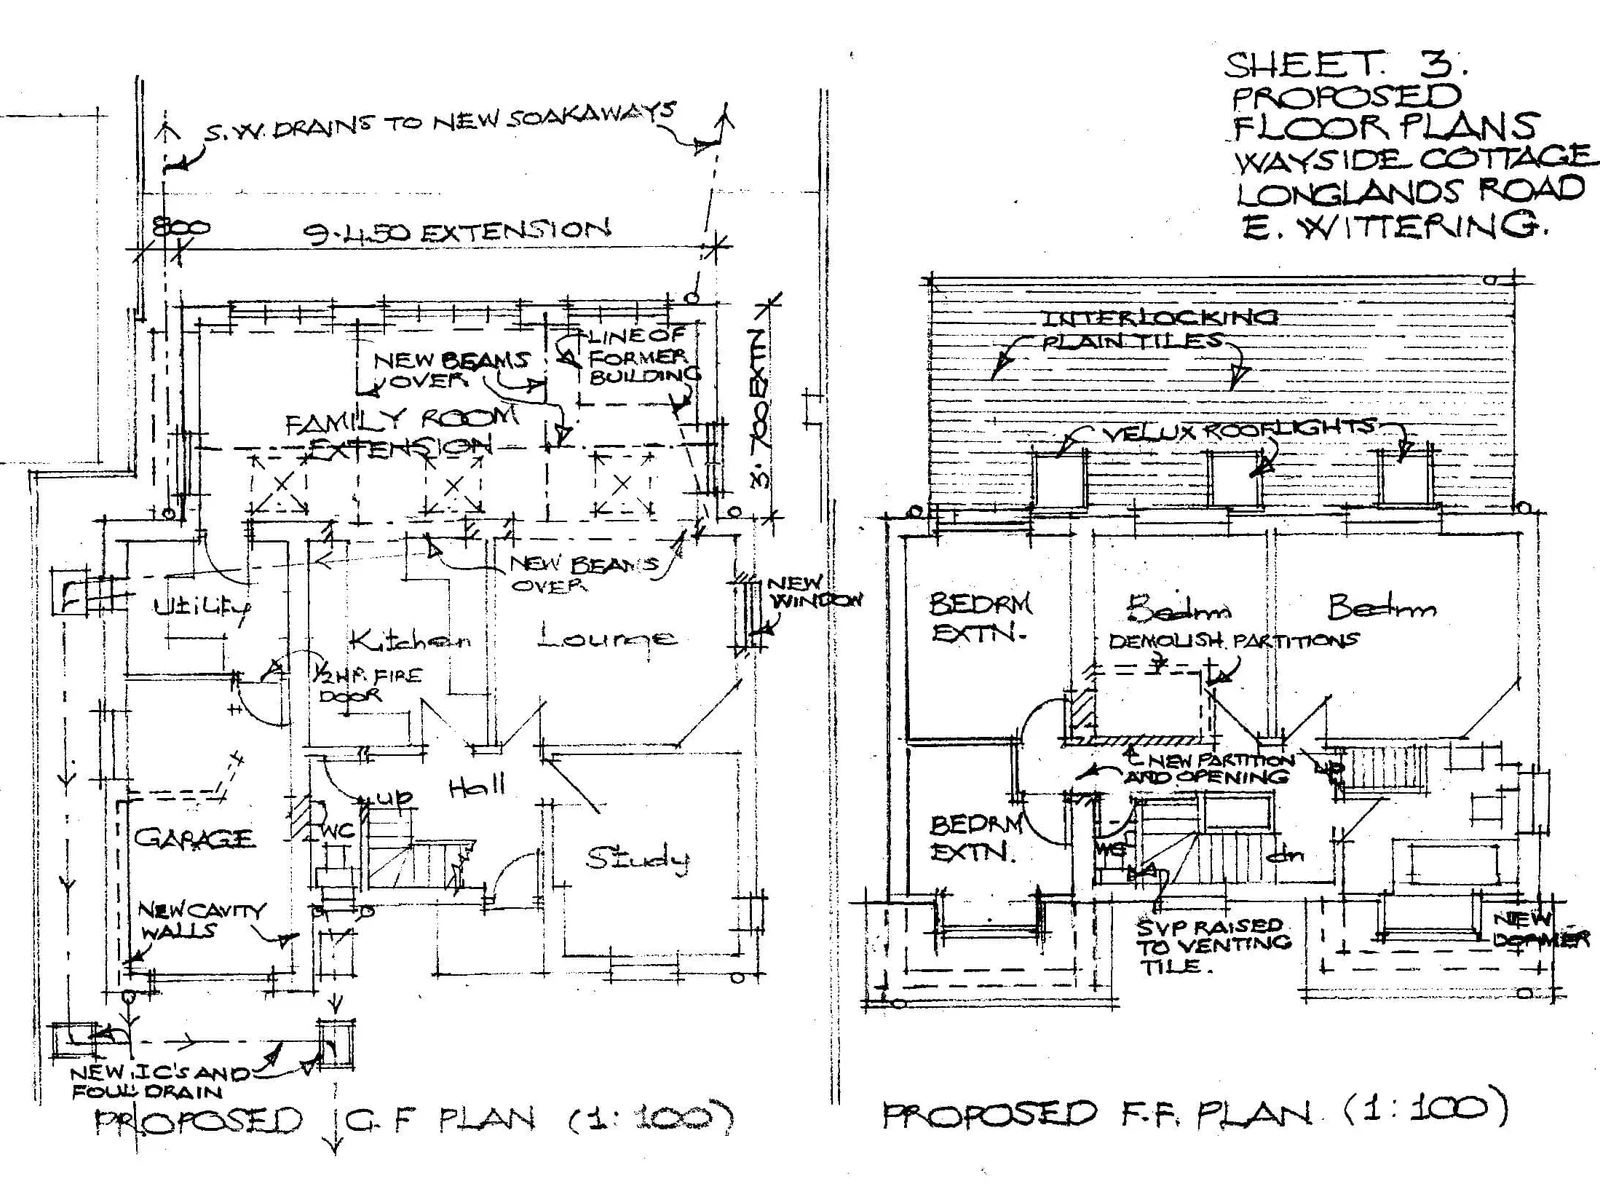 SHEET. 3.
PROPOSED
FLOOR PLANS
WAYSIDE COTTAGE
LONGLANDS ROAD
E. WITTERING.
S.W. DRAINS TO NEW SOAKAWAYS
800
9.450 EXTENSION
3.700 EXTN
LINE OF
FORMER
BUILDING
NEW BEAMS
OVER
FAMILY ROOM
EXTENSION
NEW BEAMS
OVER
NEW
WINDOW
Utility
Kitchen
Lounge
1/2 HR. FIRE
DOOR
Hall
up
WC
GARAGE
Study
NEW CAVITY
WALLS
NEW I.C'S AND
FOUL DRAIN
PROPOSED G.F PLAN (1:100)
INTERLOCKING
PLAIN TILES
VELUX ROOFLIGHTS
BEDRM
EXTN.
Bedrm
Bedrm
DEMOLISH PARTITIONS
NEW PARTITION
AND OPENING
up
BEDRM
EXTN.
WC
dn
SVP RAISED
TO VENTING
TILE.
NEW
DORMER
PROPOSED F.F. PLAN (1:100)